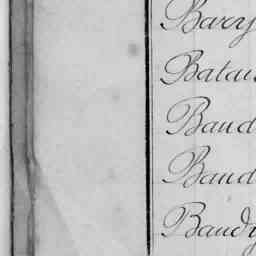 Bary
Batai
Baud
Baud
Baudy